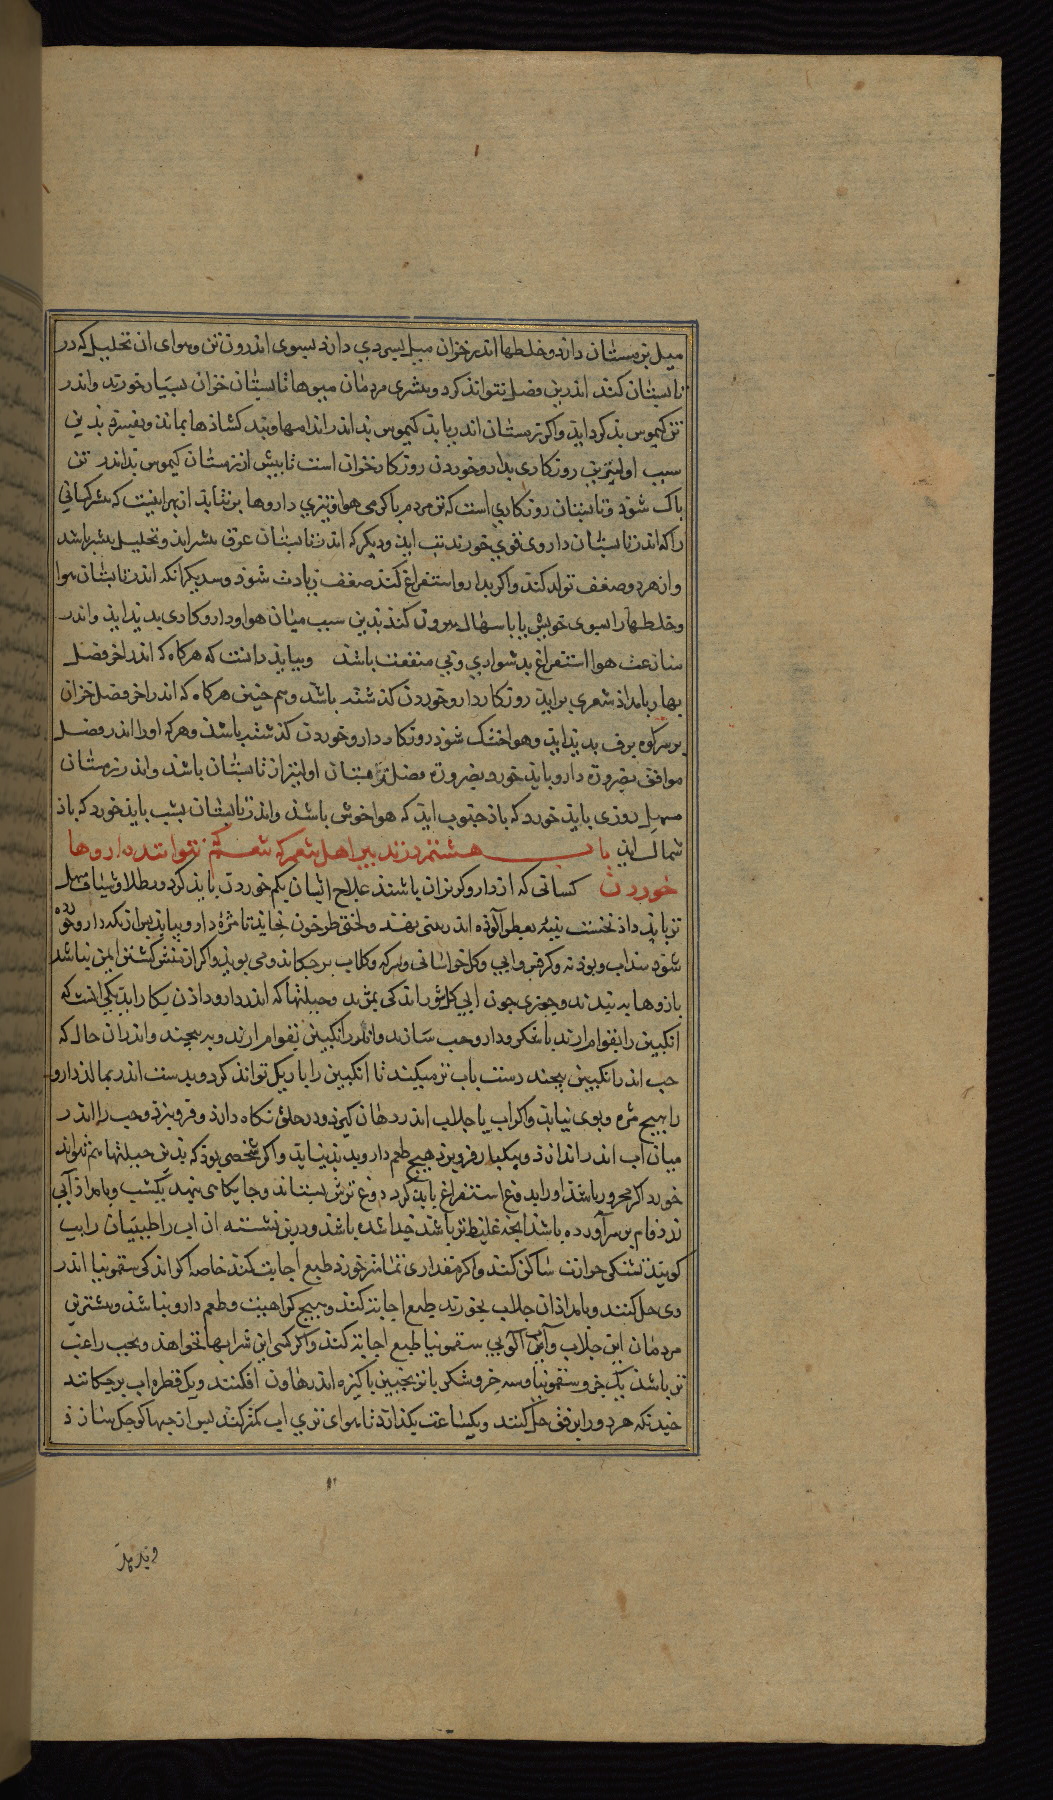 میل بزمستان دارد و خلطها اندر خزان میل بسردی دارد بسوی اندرون تن و هوای ان تحلیل که در
تابستان کند اندرین فصل نتواند کرد و بیشتری مردمان میوها تابستان خزان بسیار خورند و اندر
تن کیموس بد کرد اید و اکر زمستان اندر یابد کیموس بد اندر اندامها و بند کشادها بماند و بفسرد بدین
سبب اولیترین روزکاری بدارو خوردن روزکار خزان است تا بیش از زمستان کیموس بد اندر تن
باک شود و تابستان روزکاری است که تن مردم با کرمی هوا و تیزی داروها برنتابد از بهر اینست که بیشتر کسانی
را که اندر تابستان داروی قوی خورند تب اید و دیکر که اندر تابستان عرق بیشتر اید و تحلیل بیشتر باشد
و از هر دو ضعف تولد کند و اکر بدارو استفراغ کند ضعف زیادت شود و سدیکر انکه اندر تابستان هوا
خلطها را بسوی خویش یا باسهال بیرون کند بدین سبب میان هوا و دارو کاری بدید اید و اندر
منازعت هوا استفراغ بدشواری و بی منفعت باشد و بباید دانست که هرکاه که اندر اخر فصل
بهار بامداد شعری براید روزکار دارو خوردن کذشته باشد و هم جنین هرکاه که اندر اخر فصل خزان
بر سر کوه برف بدید اید و هوا خنک شود روزکار دارو خوردن کذشته باشد و هرکه او را اندر فصل
موافق بضرورة دارو باید خورد بضرورة فصل زمستان اولیتر از تابستان باشد و اندر زمستان
مسهل روزی باید خورد که باذ جنوب اید که هوا خوش باشد و اندر تابستان بشب باید خورد که باذ
شمال اید باب هشتم در تدبیر اهل تنعم که تنعم نتوانند داروها
خوردن کسانی که از دارو کریزان باشند علاج ایشان بکم خوردن باید کرد و بطلا و شیاف مسهل
تر باید داد نخست بنبه بعطر آلوذه اندر بینی نهند و لختی طرخون بخایند تا مزۀ دارو نیابد بس از انکه دارو خورده
شود سداب و بوذنه و کرفس و ابی و کل خراسانی و سرکه و کلاب بر جکاند و می بویند و اکر از منش کشتن ایمن نباشد
بازوها به بندند و جیزی جون ابی کل شور اندکی بمزند و حیلتها که اندر دارو دادن بکار اید یکی انست که
انکبین را بقوام ارند با شکر و دارو حب سازند و انکبین بقوام ارند و به بیجند و اندر ان حال که
حب اندر انکبین بیجند دست باب تر میکنند تا انکبین را باریک تواند کرد و بدست اندر بمالد دارو
را هیج مزه و بوی نیاید و اکر اب یا جلاب اندر دهان کیرد و در حلق نکاه دارد و فرو برد و حب را اندر
میان اب اندر اندازد و بیکبار فرو برد هیج طعم دارو بدید نیاید و اکر شخصی بوذ که بدین حیلتها هم نتواند
خورد اکر محرور باشد او را بدوغ استفراغ باید کرد دوغ ترش بستاند و جایکاهی بنهد یکشب و بامداد آبی
زردفام بر سر آورده باشد انجه غلیظتر باشد جدا شده باشد و در بن نشسته ان اب را طبیبان رایب
کویند تشنکی حرارت ساکن کند و اکر مقداری تمامتر خورد طبع اجابت کند خاصه اکر اندکی سقمونیا اندر
وی حل کنند و بامداد ان جلاب بخورند طبع اجابت کند و هیج کراهیت و طعم دارو نباشد و بیشترین
مردمان این جلاب و آبی سقمونیا طبع اجابت کند و اکر کسی این شرابها نخواهد و بحب راغب
تر باشد یک جزو سقمونیا و سه جزو شکر با ترنجبین باکیزه اندر هاون افکنند و یک قطره اب بر جکانند
جندانکه هر دو را برفق حل کنند و یکساعت بکذارند تا بهوای تری اب کمتر کند بس از حبها کوجک سازد